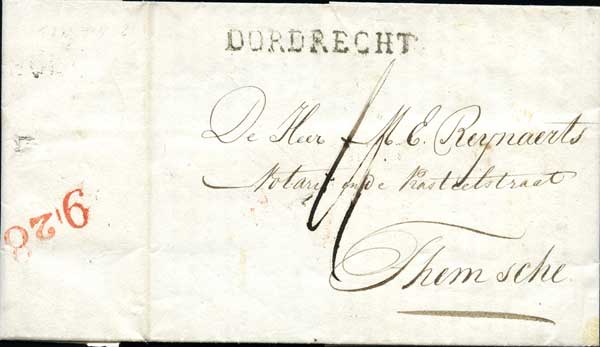 DORDRECHT
De Heer M E. Reijnaerts
Notaris in de Kasteelstraat
Themsche